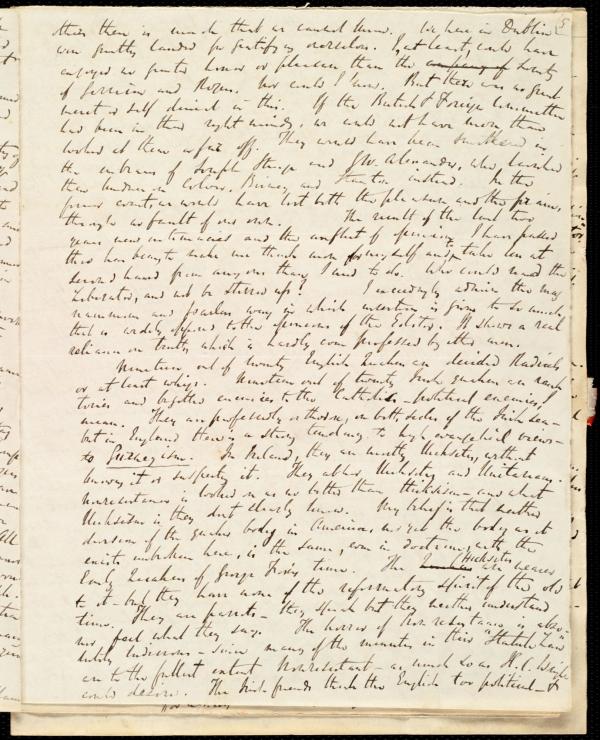 there is much that we cannot have. We here in Dublin
were greatly lauded for gratifying ourselves. I, at least, could have
enjoyed no greater honor or pleasure than the company of
of Garrison and Rogers. nor could I have. But there was no great
merit or self denial in this. If the British & Foreign Committee
had been in their right minds, we could not have more than
looked at them afar off. They would have been smothered in
the embraces of Joseph Sturge and G.W. Alexander, who lavished
their kindness on Colver, Birney, and Stanton instead. In the
former event we would have lost both the pleasure and the praise,
through no fault of our own. The result of the last two
years new intimacies and the conflict of opinions I have passed
thro has been to make me think more for myself and to take less at
second hand from any one than I used to do. Who could read the
Liberator, and not be stirred up? I exceedingly admire the mag
nanimous and fearless way in which insertion is given to so much
that is widely opposed to the opinions of the Editor. It shows a real
reliance on truth which is hardly even professed by other men.
Nineteen out of twenty English Quakers are decided Radicals
or at least whigs. Nineteen out of twenty Irish Quakers are really
tories and together enemies to the Catholics - political enemies, I
mean. They are professedly orthodox, on both sides of the Irish sea -
but in England there is a strong tendency to high evangelical views -
to Puseyism. In Ireland, they are mostly Hicksites, without
knowing it or suspecting it. They abhor Hicksites and Unitarians -
Nonresistance is looked on as no better than Hicksism - and what
Hicksism is they dont clearly know. My belief is that neither
division of the quaker body in America, nor yet the body as it
exists unbroken here, is the same, even in doctrine, with the
Early Quakers of George Fox's time. The Hicksites are nearer
to it - but they have none of the reformatory spirit of the old
time. They are parrots - they speak but they neither understand
nor feel what they say. The horror of Non resistance is abso-
lutely ludicrous - since many of the minutes in their "Statute Law"
are to the fullest extent Nonresistant - as much so as H.C. Wright
could desire. The Irish friends think the English too political - &